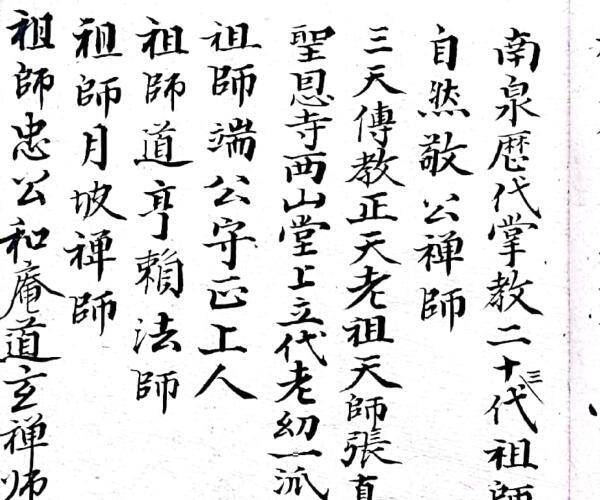 南泉歴代掌教二十三代祖師
自然敬公禅師
三天傳教正天老祖天師張真
聖恩寺西山堂上立代老幼一派
祖師端公守正上人
祖師道亨賴法師
祖師月坡禅師
祖師忠公和庵道玄禅师